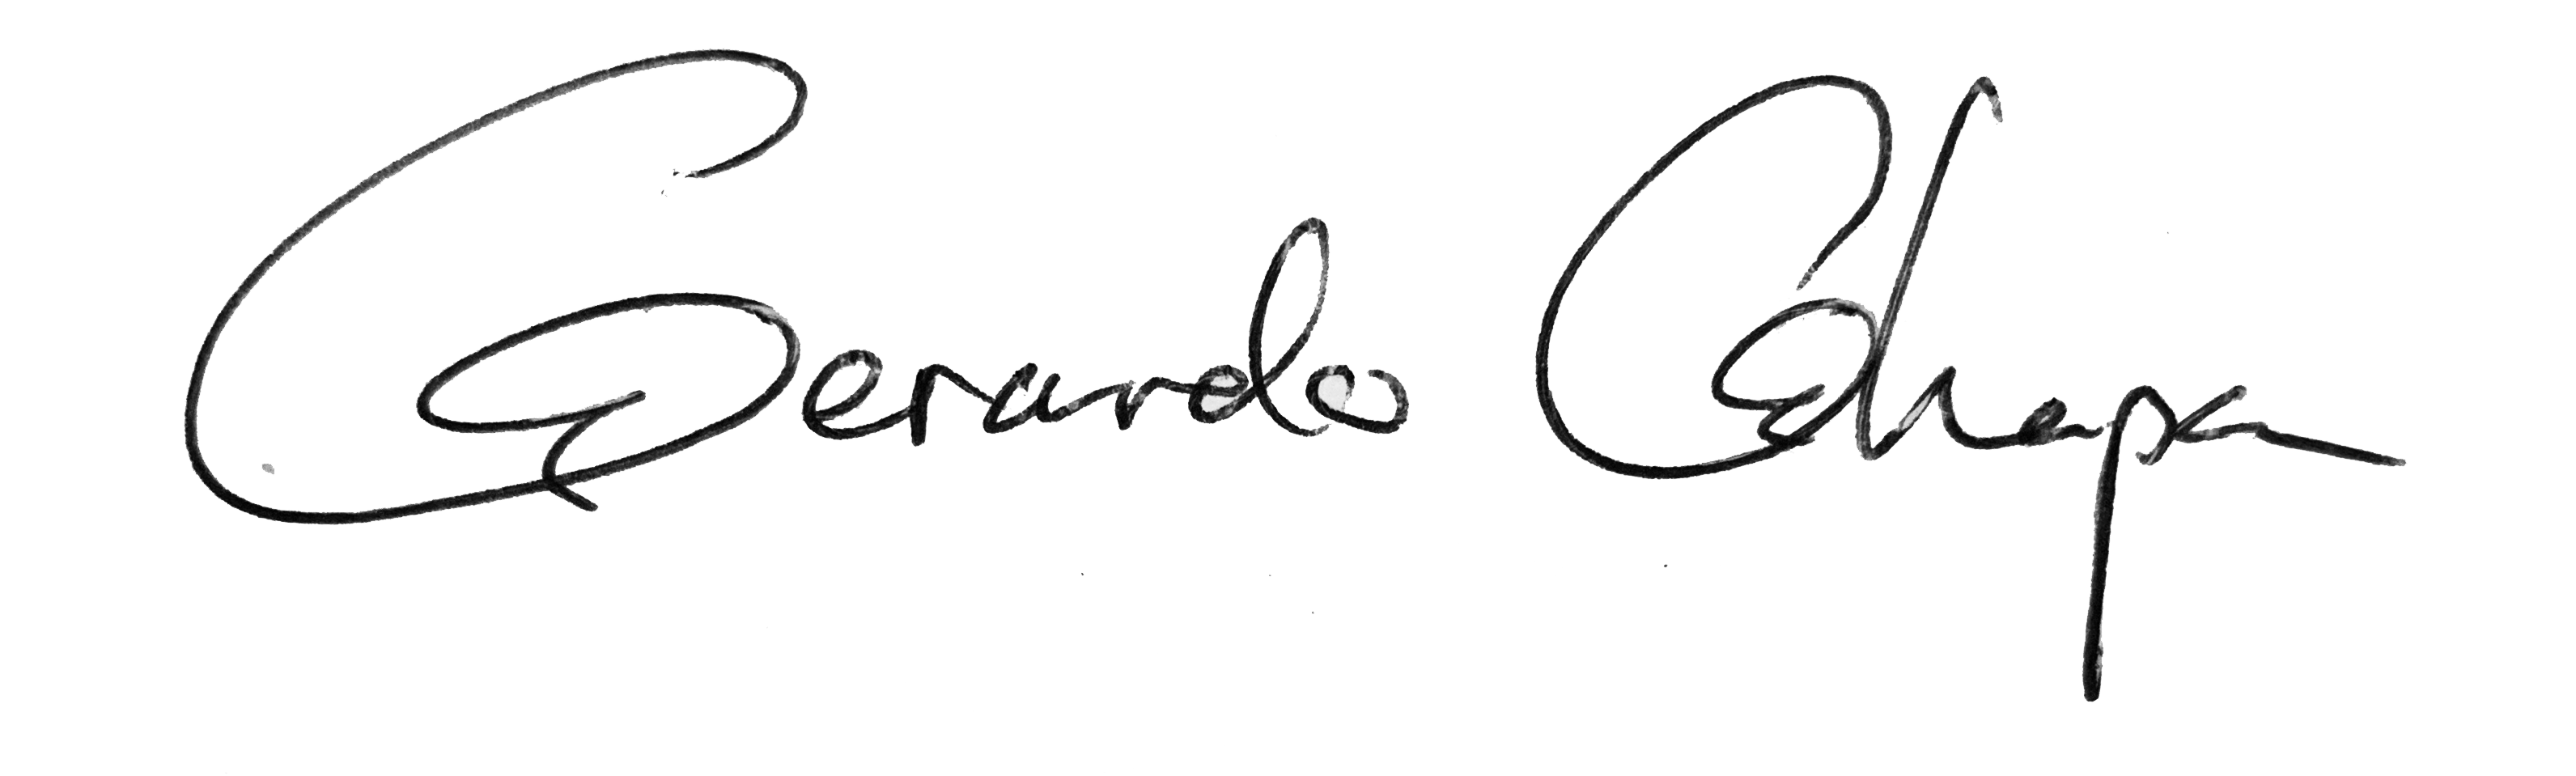 Gerardo Chapa